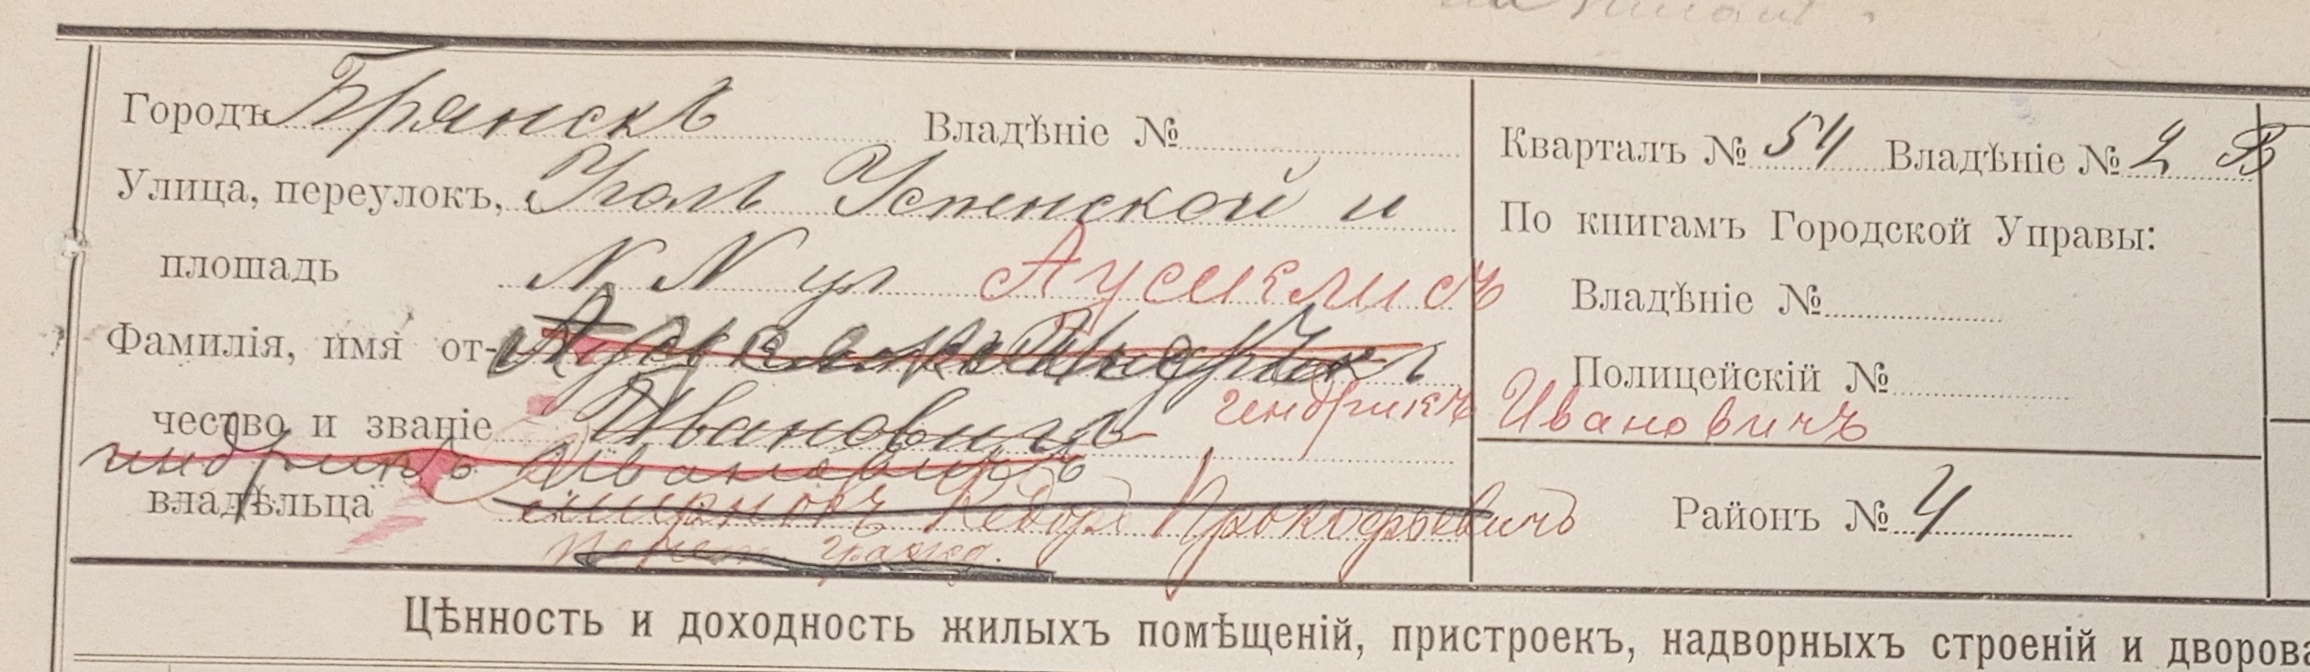 Городъ Брянскъ Владѣніе № Кварталъ № 54 Владѣніе № 2 В
Улица, переулокъ, Уголъ Успенской и По книгамъ Городской Управы:
площадь N N ул Аусиклисъ Владѣніе №
Фамилія, имя от- Полицейскій №
чество и званіе Ивановичъ гендрикъ Ивановичъ
гиндрикъ Ивановичъ
владѣльца Смирновъ Федоръ Прокофьевичъ Районъ № 4
Цѣнность и доходность жилыхъ помѣщеній, пристроекъ, надворныхъ строеній и дворова